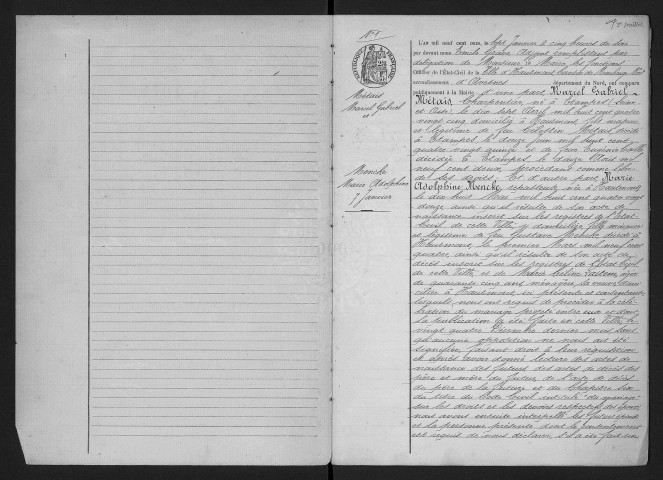 1er feuillet
N° 1
RÉPUBLIQUE FRANÇAISE
Métais
Marcel Gabriel
et
Mencke
Marie Adolphine
7 Janvier
L'AN mil neuf cent onze, le sept Janvier à cinq heures du soir
par devant nous Emile Adjoint remplissant par
délégation de Monsieur le Maire les fonctions
Officier de l'État-Civil de la Ville d'Hautmont
arrondissement d'Avesnes département du Nord, ont comparu
publiquement à la Mairie d'une part Marcel Gabriel
Métais, Charpentier, né à Etampes Seine
et Oise le dix sept Avril mil huit cent quatre
vingt cinq domicilié à Hautmont fils majeur
et légitime de feu Métais décédé
à Etampes le douze juin mil huit cent
quatre vingt quinze et de feue
décédée à Etampes le douze Mars mil
neuf cent deux, procédant comme
de ses droits. Et d'autre part Marie
Adolphine Mencke, repasseuse née à Hautmont
le dix huit Mars mil huit cent quatre vingt
douze ainsi qu'il résulte de son acte de
naissance inscrit sur les registres de l'état
Civil de cette Ville, y domiciliée fille mineure
et légitime de feu Gustave Mencke décédé à
Hautmont le premier Mars mil neuf cent
quatre ainsi qu'il résulte de son acte de
décès inscrit sur les registres de l'état Civil
de cette Ville, et de Marie Céline âgée
de quarante cinq ans ménagère, sa veuve
à Hautmont ici présente et consentante
lesquels nous ont requis de procéder à la célé-
bration du mariage projeté entre eux et dont
la publication a été faite en cette Ville le
vingt quatre Décembre dernier mois sans
qu'aucune opposition ne nous ait été
signifiée, faisant droit à leur réquisition
et après avoir donné lecture des actes de
naissance des futurs des actes de décès des
père et mère du futur, de l'acte de décès
du père de la future et du Chapitre six
du titre du Code Civil intitulé du mariage
sur les droits et les devoirs respectifs des époux
nous avons ensuite interpellé les futurs époux
et la personne présente dont le consentement
est requis de nous déclarer, s'il a été fait un